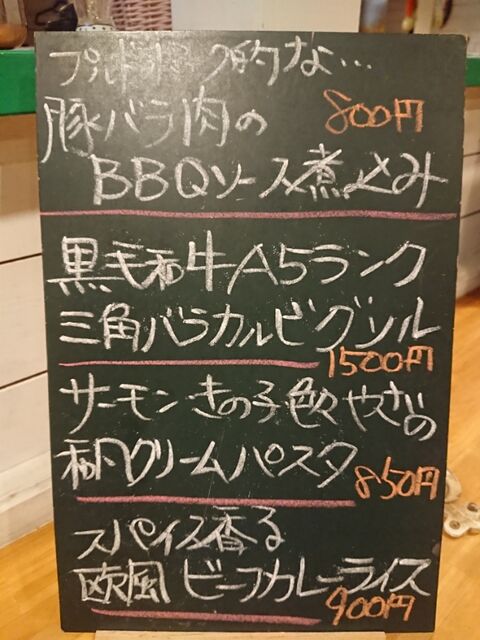 的な…
豚バラ肉の 800円
BBQソース煮込み
黒毛和牛A5ランク
三角バラカルビグリル
1500円
サーモンきの子色んやさいの
和風クリームパスタ 850円
スパイス香る
欧風ビーフカレーライス
900円